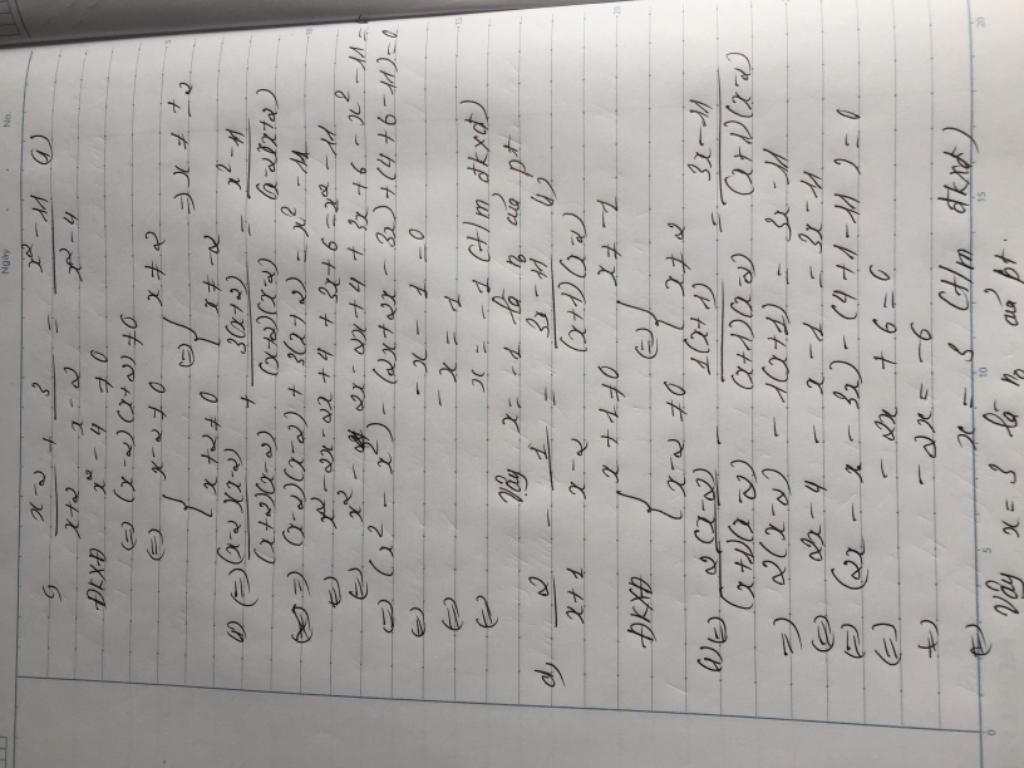 No.
Ngày
c) x-2/x+2 + 3/x-2 = x²-11/x²-4 (1)
ĐKXĐ x²-4 ≠ 0
(=) (x-2)(x+2) ≠ 0
(=) { x-2 ≠ 0 (=) { x ≠ 2
x+2 ≠ 0 x ≠ -2 => x ≠ ±2
(1) (=) (x-2)(x-2)/(x+2)(x-2) + 3(x+2)/(x+2)(x-2) = x²-11/(x-2)(x+2)
=> (x-2)(x-2) + 3(x+2) = x²-11
(=) x²-2x-2x+4+3x+6 = x²-11
(=) x²-2x-2x+4+3x+6-x²-11=
(=) (x²-x²)-(2x+2x-3x)+(4+6-11)=0
(=) -x-1=0
(=) -x=1
(=) x=-1 (t/m đkxđ)
Vậy x=-1 là n⁰ của pt.
d) 2/x+1 - 1/x-2 = 3x-11/(x+1)(x-2) (1)
ĐKXĐ { x+1 ≠ 0 (=) { x ≠ -1
x-2 ≠ 0 x ≠ 2
(1) (=) 2(x-2)/(x+1)(x-2) - 1(x+1)/(x+1)(x-2) = 3x-11/(x+1)(x-2)
=> 2(x-2) - 1(x+1) = 3x-11
(=) 2x-4-x-1=3x-11
(=) (2x-x-3x)-(4+1-11)=0
(=) -2x+6=0
(=) -2x=-6
(=) x=3 (t/m đkxđ)
Vậy x=3 là n⁰ của pt.